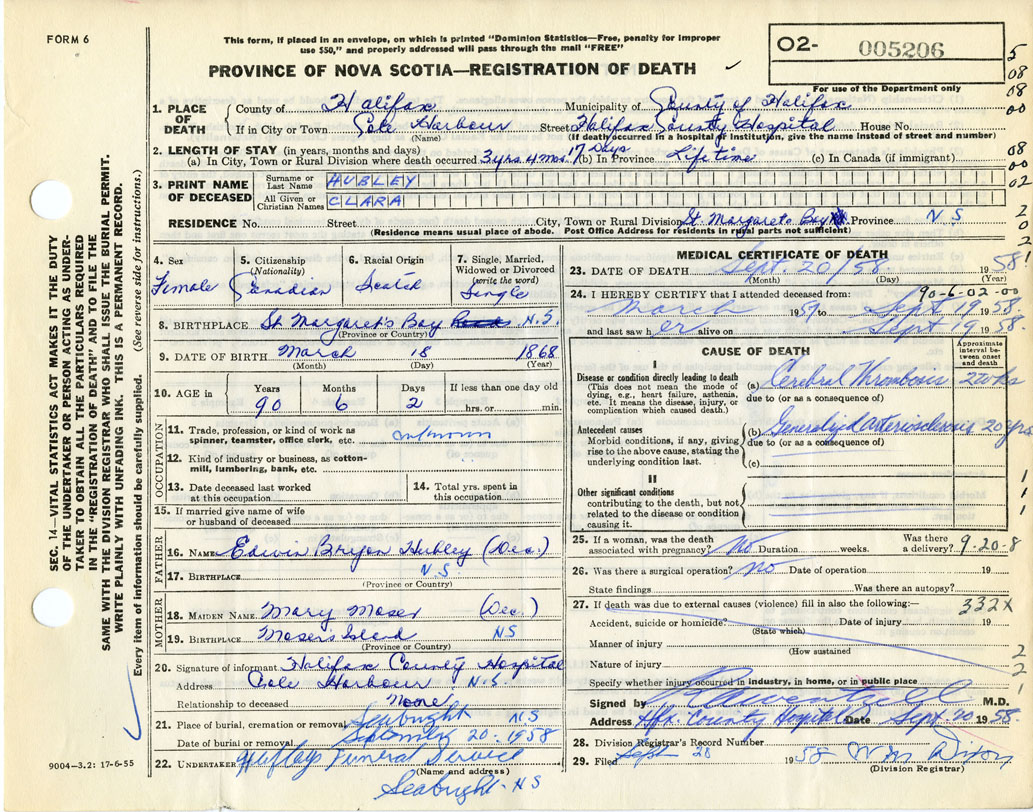 FORM 6
This form, if placed in an envelope, on which is printed "Dominion Statistics—Free, penalty for improper
use $50," and properly addressed will pass through the mail "FREE"
PROVINCE OF NOVA SCOTIA—REGISTRATION OF DEATH
02- 005206
For use of the Department only
5
08
08
00
1. PLACE OF DEATH
County of Halifax Municipality of County of Halifax
If in City or Town Cole Harbour Street Halifax County Hospital House No.
(Name) (If death occurred in a hospital or institution, give the name instead of street and number)
2. LENGTH OF STAY (in years, months and days)
(a) In City, Town or Rural Division where death occurred 3 yrs. 4 mos. 17 Days (b) In Province Lifetime (c) In Canada (if immigrant)
08
00
02
3. PRINT NAME OF DECEASED
Surname or Last Name HUBLEY
All Given or Christian Names CLARA
RESIDENCE No. Street City, Town or Rural Division St. Margarets Bay Province N S
(Residence means usual place of abode. Post Office Address for residents in rural parts not sufficient)
2
0
2
4. Sex
Female
5. Citizenship (Nationality)
Canadian
6. Racial Origin
Scotch
7. Single, Married, Widowed or Divorced (write the word)
Single
8. BIRTHPLACE St Margaret's Bay N.S.
(Province or Country)
9. DATE OF BIRTH March 18 1868
(Month) (Day) (Year)
10. AGE in Years Months Days If less than one day old
90 6 2 hrs. or min.
OCCUPATION
11. Trade, profession, or kind of work as spinner, teamster, office clerk, etc. unknown
12. Kind of industry or business, as cotton-mill, lumbering, bank, etc.
13. Date deceased last worked at this occupation
14. Total yrs. spent in this occupation
15. If married give name of wife or husband of deceased
FATHER
16. NAME Edwin Bryon Hubley (Dec.)
17. BIRTHPLACE N.S.
(Province or Country)
MOTHER
18. MAIDEN NAME Mary Moser (Dec.)
19. BIRTHPLACE Mosers Island NS
(Province or Country)
20. Signature of informant Halifax County Hospital
Address Cole Harbour N.S.
Relationship to deceased None
21. Place of burial, cremation or removal Seabright NS
Date of burial or removal September 20-1958
22. UNDERTAKER Hubleys Funeral Service
(Name and address)
Seabright NS
MEDICAL CERTIFICATE OF DEATH
23. DATE OF DEATH Sept. 20/58 1958
(Month) (Day) (Year)
1
24. I HEREBY CERTIFY that I attended deceased from: 90-6-02-00
March 1957 to Sept 19 1958
and last saw her alive on Sept 19 1958
CAUSE OF DEATH
Approximate interval between onset and death
I
Disease or condition directly leading to death
(This does not mean the mode of dying, e.g., heart failure, asthenia, etc. It means the disease, injury, or complication which caused death.)
(a) Cerebral Thrombosis 2 wks
due to (or as a consequence of)
Antecedent causes
Morbid conditions, if any, giving rise to the above cause, stating the underlying condition last.
(b) Generalized arteriosclerosis 20 yrs
due to (or as a consequence of)
(c)
II
Other significant conditions
contributing to the death, but not related to the disease or condition causing it.
1
1
1
25. If a woman, was the death associated with pregnancy? No Duration weeks. Was there a delivery? 9-20-8
26. Was there a surgical operation? no Date of operation 19
State findings Was there an autopsy?
27. If death was due to external causes (violence) fill in also the following:— 332X
Accident, suicide or homicide? Date of injury 19
(State which)
Manner of injury
(How sustained
Nature of injury
2
2
1
Specify whether injury occurred in industry, in home, or in public place
Signed by M.D.
Address Hfx. County Hospital Date Sept. 20 1958
28. Division Registrar's Record Number
29. Filed Sept 20 1958 Wm Dixon
(Division Registrar)
SEC. 14—VITAL STATISTICS ACT MAKES IT THE DUTY
OF THE UNDERTAKER OR PERSON ACTING AS UNDER-
TAKER TO OBTAIN ALL THE PARTICULARS REQUIRED
IN THE "REGISTRATION OF DEATH" AND TO FILE THE
SAME WITH THE DIVISION REGISTRAR WHO SHALL ISSUE THE BURIAL PERMIT.
WRITE PLAINLY WITH UNFADING INK. THIS IS A PERMANENT RECORD.
Every item of information should be carefully supplied. (See reverse side for instructions.)
9004—3.2: 17-6-55